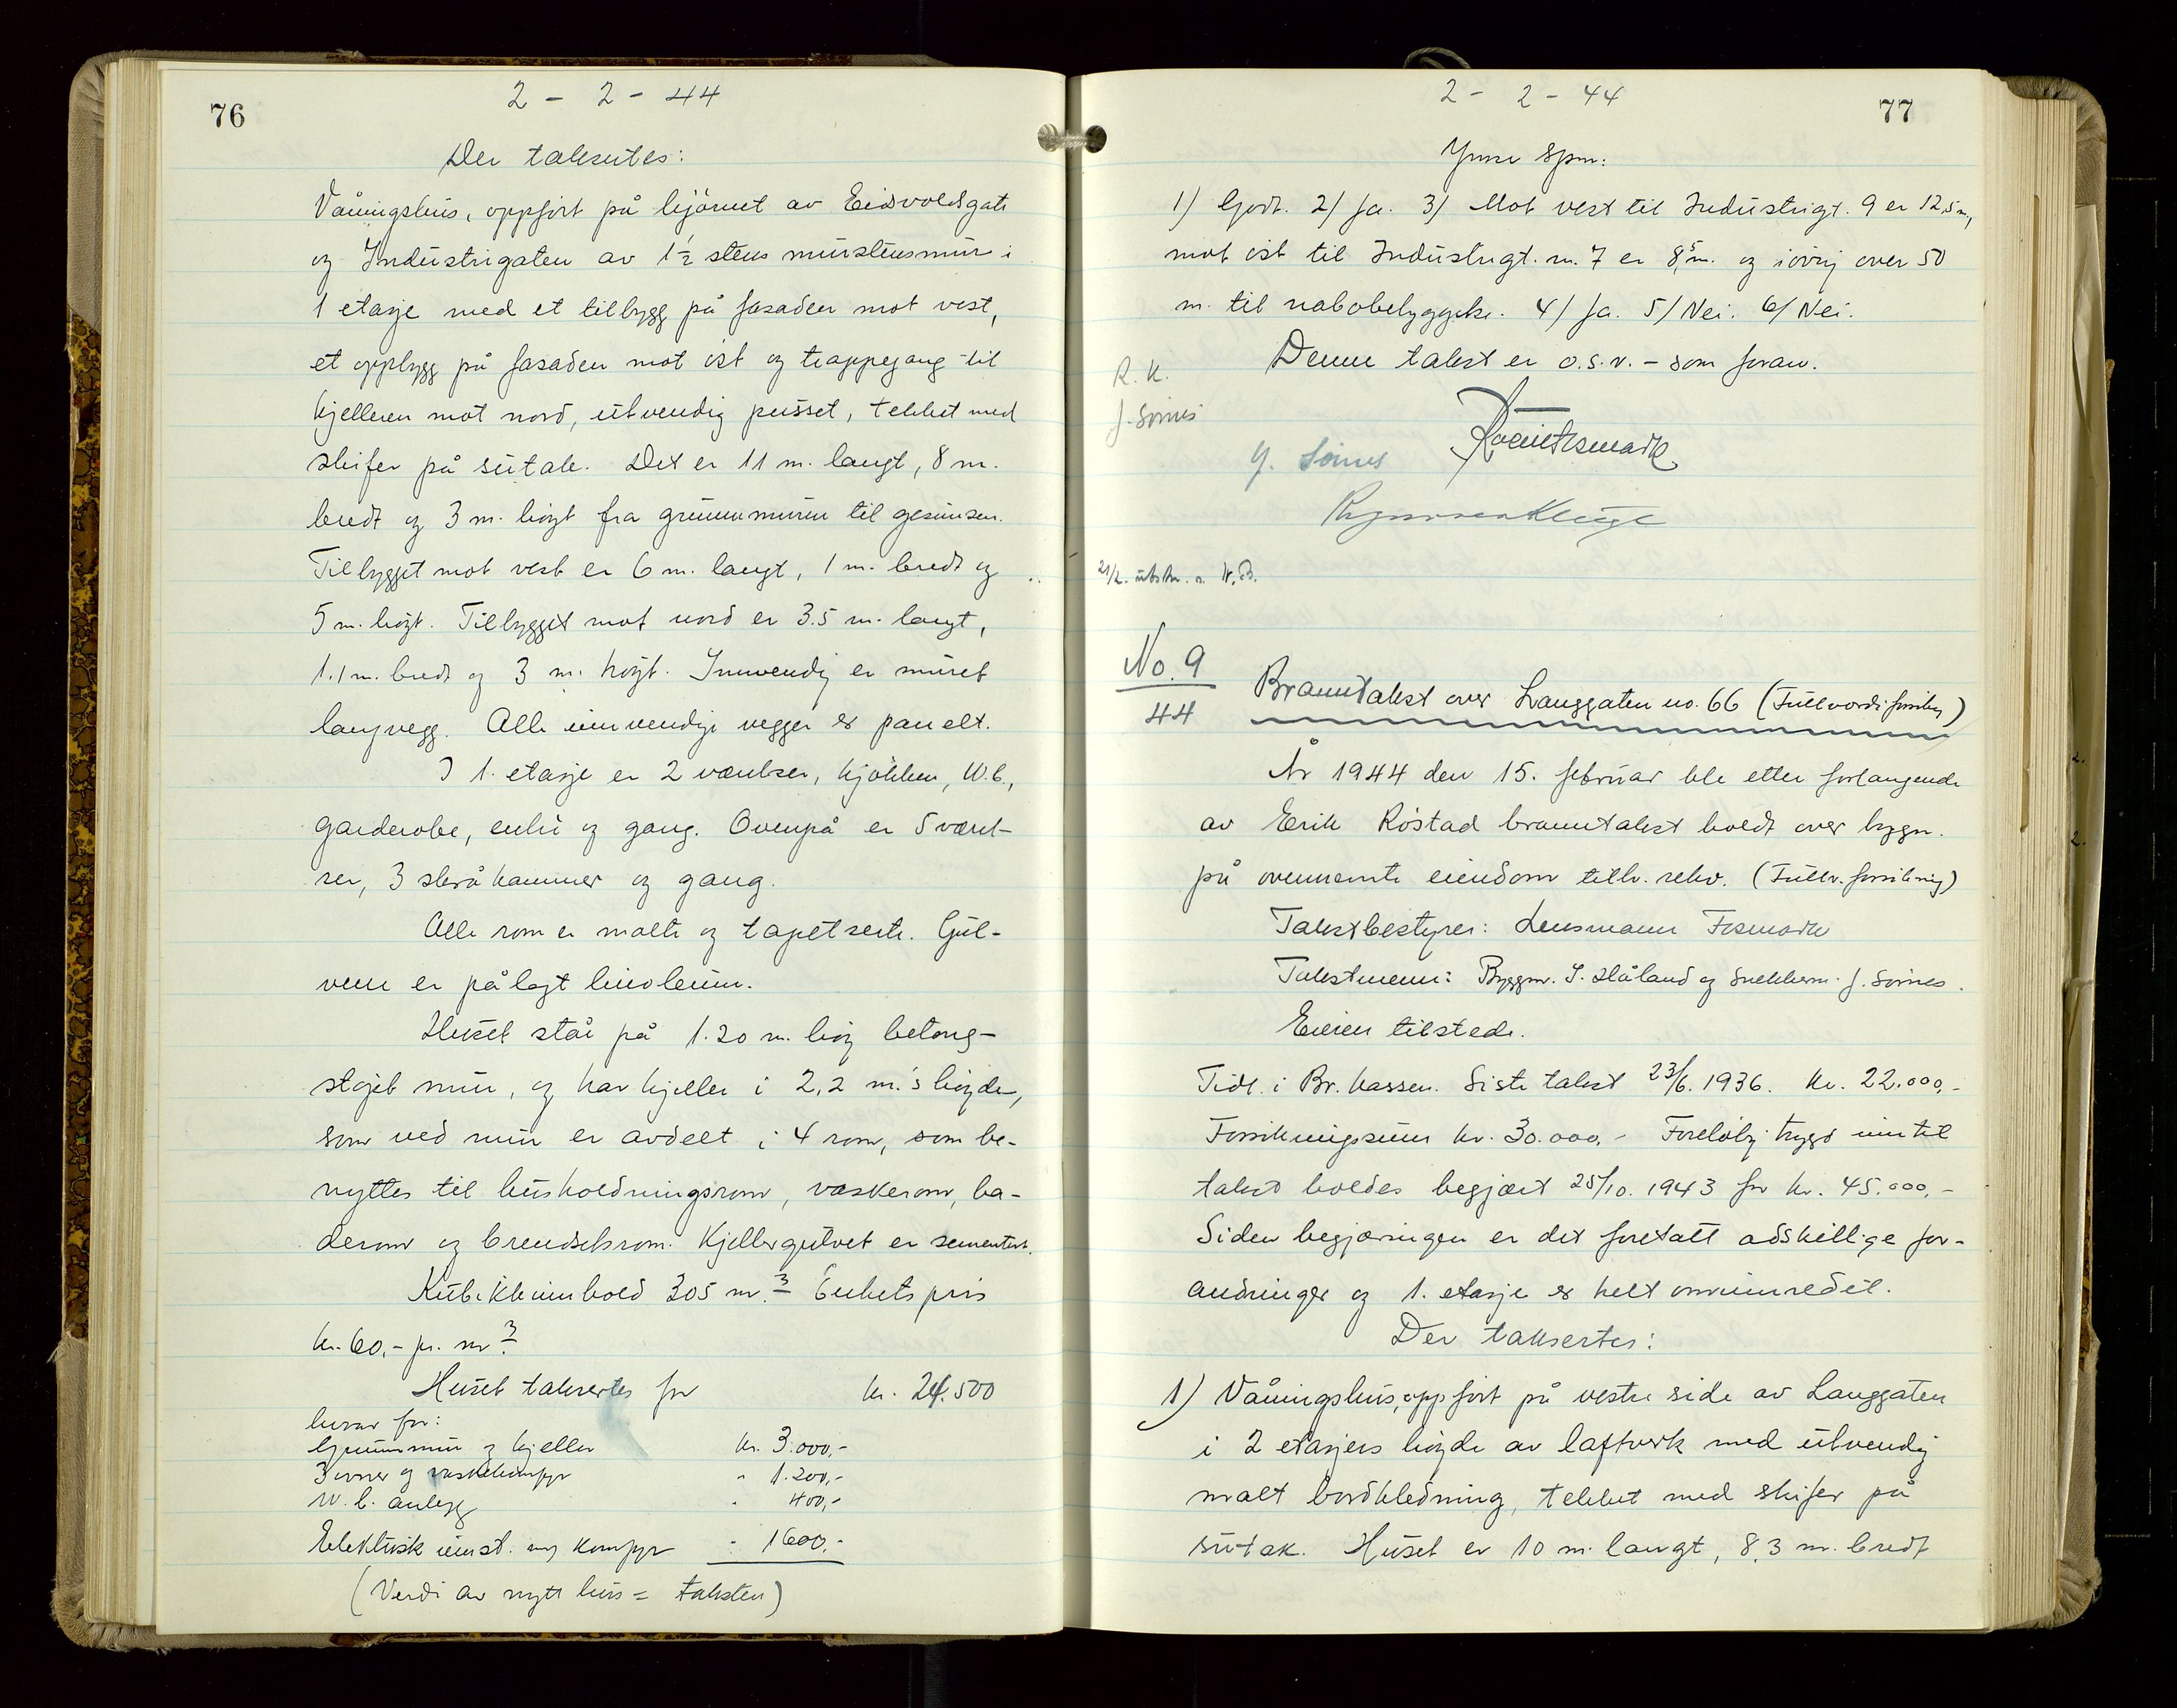 76
2 - 2 - 44
Der takseres:
Våningshus, oppført på hjørnet av Eidsvoldsgate
og Industrigaten av 1½ stens murstensmur i
1 etasje med et tilbygg på fasaden mot vest,
et oppbygg på fasaden mot øst og trappegang til
kjelleren mot nord, utvendig pusset, tekket med
skifer på sutak. Det er 11 m. langt, 8 m.
bredt og 3 m. høgt fra grunnmuren til gesimsen.
Tilbygget mot vest er 6 m. langt, 1 m. bredt og
5 m. høgt. Tilbygget mot nord er 3.5 m. langt,
1.1 m. bredt og 3 m. høgt. Innvendig er muret
langvegg. Alle innvendige vegger er panelt.
I 1. etasje er 2 værelser, kjøkken, W.C.,
garderobe, entre og gang. Ovenpå er 5 værel-
ser, 3 skråkammer og gang.
Alle rom er malte og tapetserte. Gul-
vene er pålagt linoleum.
Huset står på 1.20 m. høg betong-
støpt mur, og har kjeller i 2,2 m.'s høgde,
som ved mur er avdelt i 4 rom, som be-
nyttes til husholdningsrom, vaskerom, ba-
derom og brendselsrom. Kjellergulvet er sementert.
Kubikkinnhold 305 m.3 Enhetspris
kr. 60,- pr. m3.
Huset takseres for kr. 24.500
hvorav for:
Grunnmur og kjeller kr. 3.000,-
3 ovner og vaskekomfyr " 1.200,-
W.C. anlegg " 400,-
Elektrisk inst. og komfyr " 1600,-
(Verdi av nytt hus = taksten)
77
2 - 2 - 44
Ymse Spm:
1) Godt. 2) Ja. 3) Mot vest til Industrigt. 9 er 12,5 m.,
mot øst til Industrigt. nr. 7 er 8,5 m. og iøvrig over 50
m. til nabobebyggelse. 4) Ja. 5) Nei. 6) Nei.
Denne takst er o.s.v. - som foran.
R. K.
J. Sørnes
J. Sørnes
21/2. utskr. s. N.B.
No. 9
44
Branntakst over Langgaten no. 66 (Fullverdiforsikring)
År 1944 den 15. februar ble etter forlangende
av Erik Røstad branntakst holdt over bygn.
på ovennevnte eiendom tilh. rekv. (Fullv. forsikring)
Takstbestyrer: Lensmann Fosmark
Takstmenn: Byggm. S. Håland og snekkerm. J. Sørnes.
Eieren tilstede.
Tidl. i Br. kassen. Siste takst 23/6. 1936. Kr. 22.000,-
Forsikringssum kr. 30.000,- Foreløbig trygd inntil
takst holdes begjært 25/10. 1943 for kr. 45.000,-
Siden begjæringen er det foretatt adskillige for-
andringer og 1. etasje er helt ominnredet.
Der taksertes:
1) Våningshus, oppført på vestre side av Langgaten
i 2 etasjers høgde av laftverk med utvendig
malt bordkledning, tekket med skifer på
sutak. Huset er 10 m. langt, 8,3 m. bredt